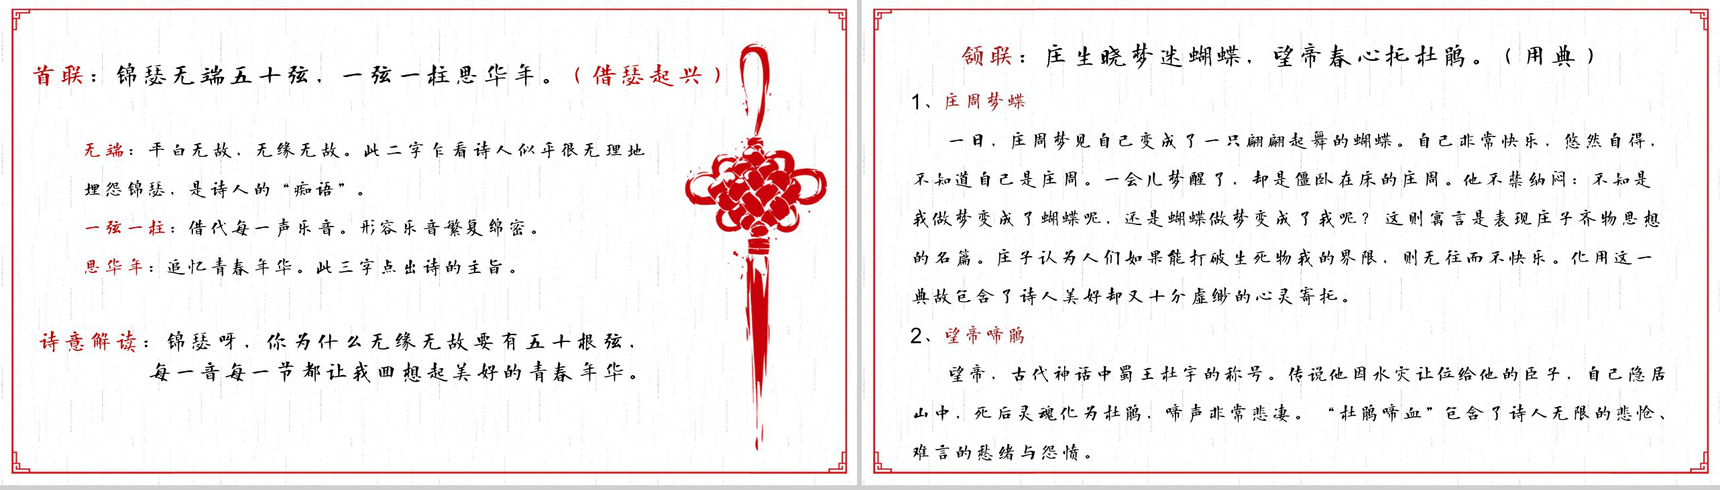 首联：锦瑟无端五十弦，一弦一柱思华年。（借瑟起兴）
无端：平白无故，无缘无故。此二字乍看诗人似乎很无理地
埋怨锦瑟，是诗人的“痴语”。
一弦一柱：借代每一声乐音。形容乐音繁复绵密。
思华年：追忆青春年华。此三字点出诗的主旨。
诗意解读：锦瑟呀，你为什么无缘无故要有五十根弦，
每一音每一节都让我回想起美好的青春年华。
颔联：庄生晓梦迷蝴蝶，望帝春心托杜鹃。（用典）
1、庄周梦蝶
一日，庄周梦见自己变成了一只翩翩起舞的蝴蝶。自己非常快乐，悠然自得，
不知道自己是庄周。一会儿梦醒了，却是僵卧在床的庄周。他不禁纳闷：不知是
我做梦变成了蝴蝶呢，还是蝴蝶做梦变成了我呢？这则寓言是表现庄子齐物思想
的名篇。庄子认为人们如果能打破生死物我的界限，则无往而不快乐。化用这一
典故包含了诗人美好却又十分虚缈的心灵寄托。
2、望帝啼鹃
望帝，古代神话中蜀王杜宇的称号。传说他因水灾让位给他的臣子，自己隐居
山中，死后灵魂化为杜鹃，啼声非常悲凄。“杜鹃啼血”包含了诗人无限的悲怆、
难言的愁绪与怨愤。